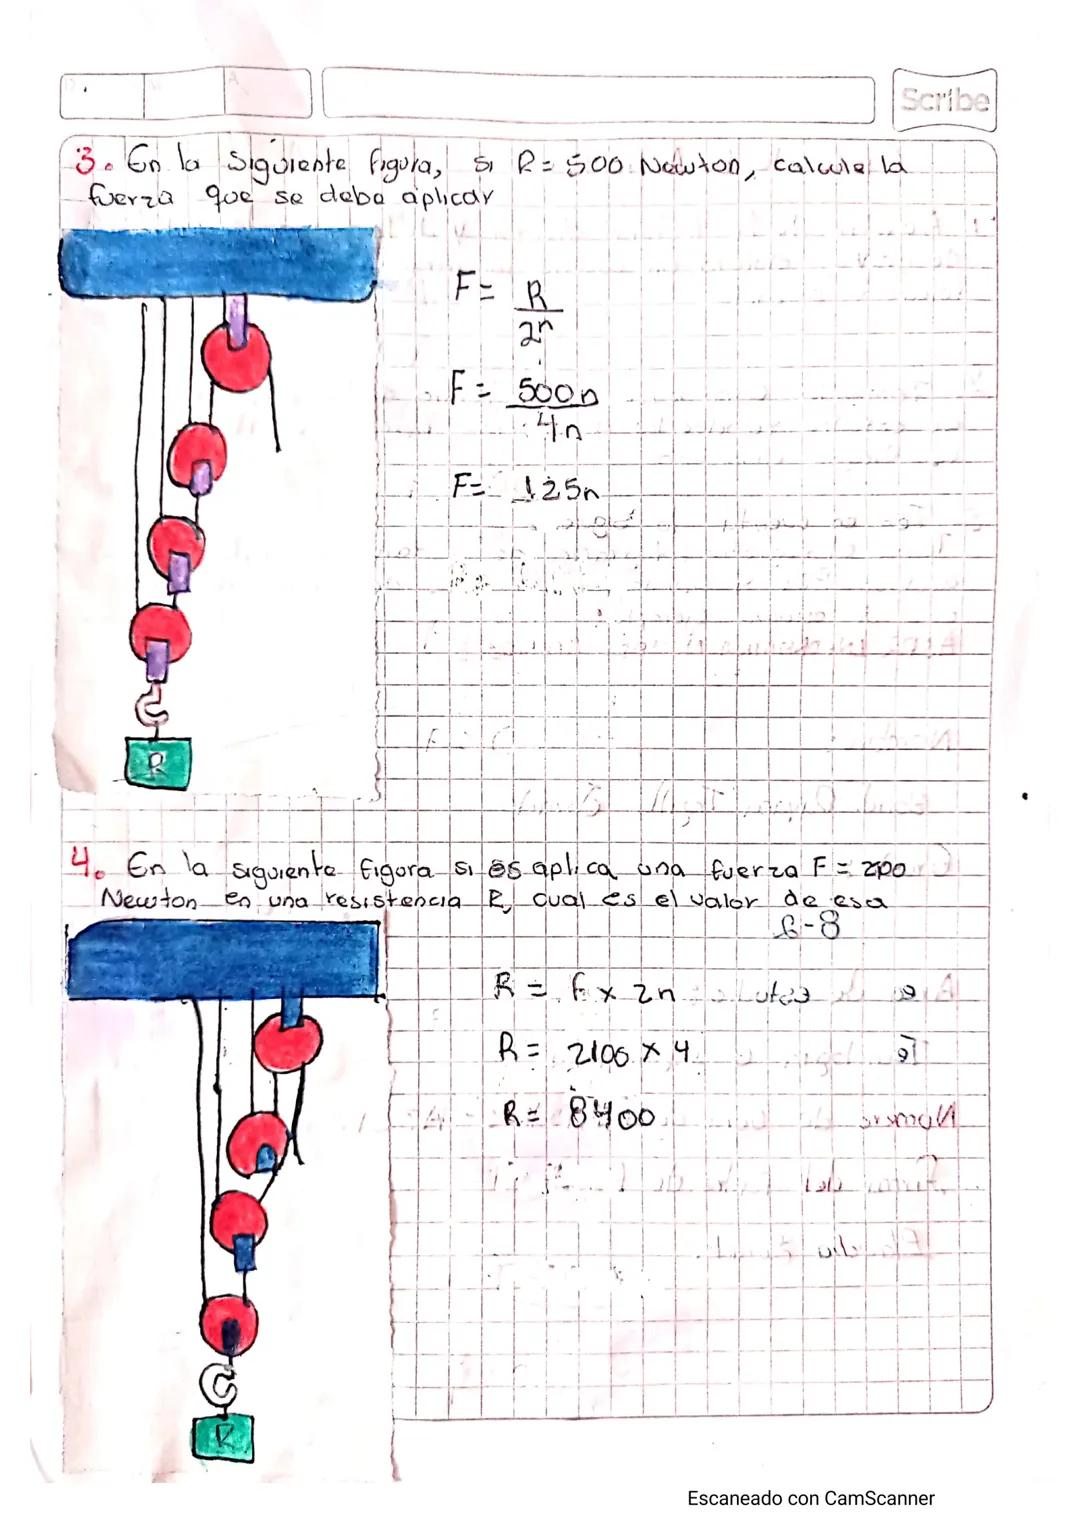 Scribe
3. En la siguiente figura, si R= 500 Newton, calcule la
fuerza que se deba aplicar
F= R
2n
F= 500n
4n
F= 125n
R
4. En la siguiente figura si es aplica una fuerza F= 200
Newton en una resistencia R, cual es el valor de esa
R= F x 2n
R= 2100 x 4
R= 8400
R
Escaneado con CamScanner